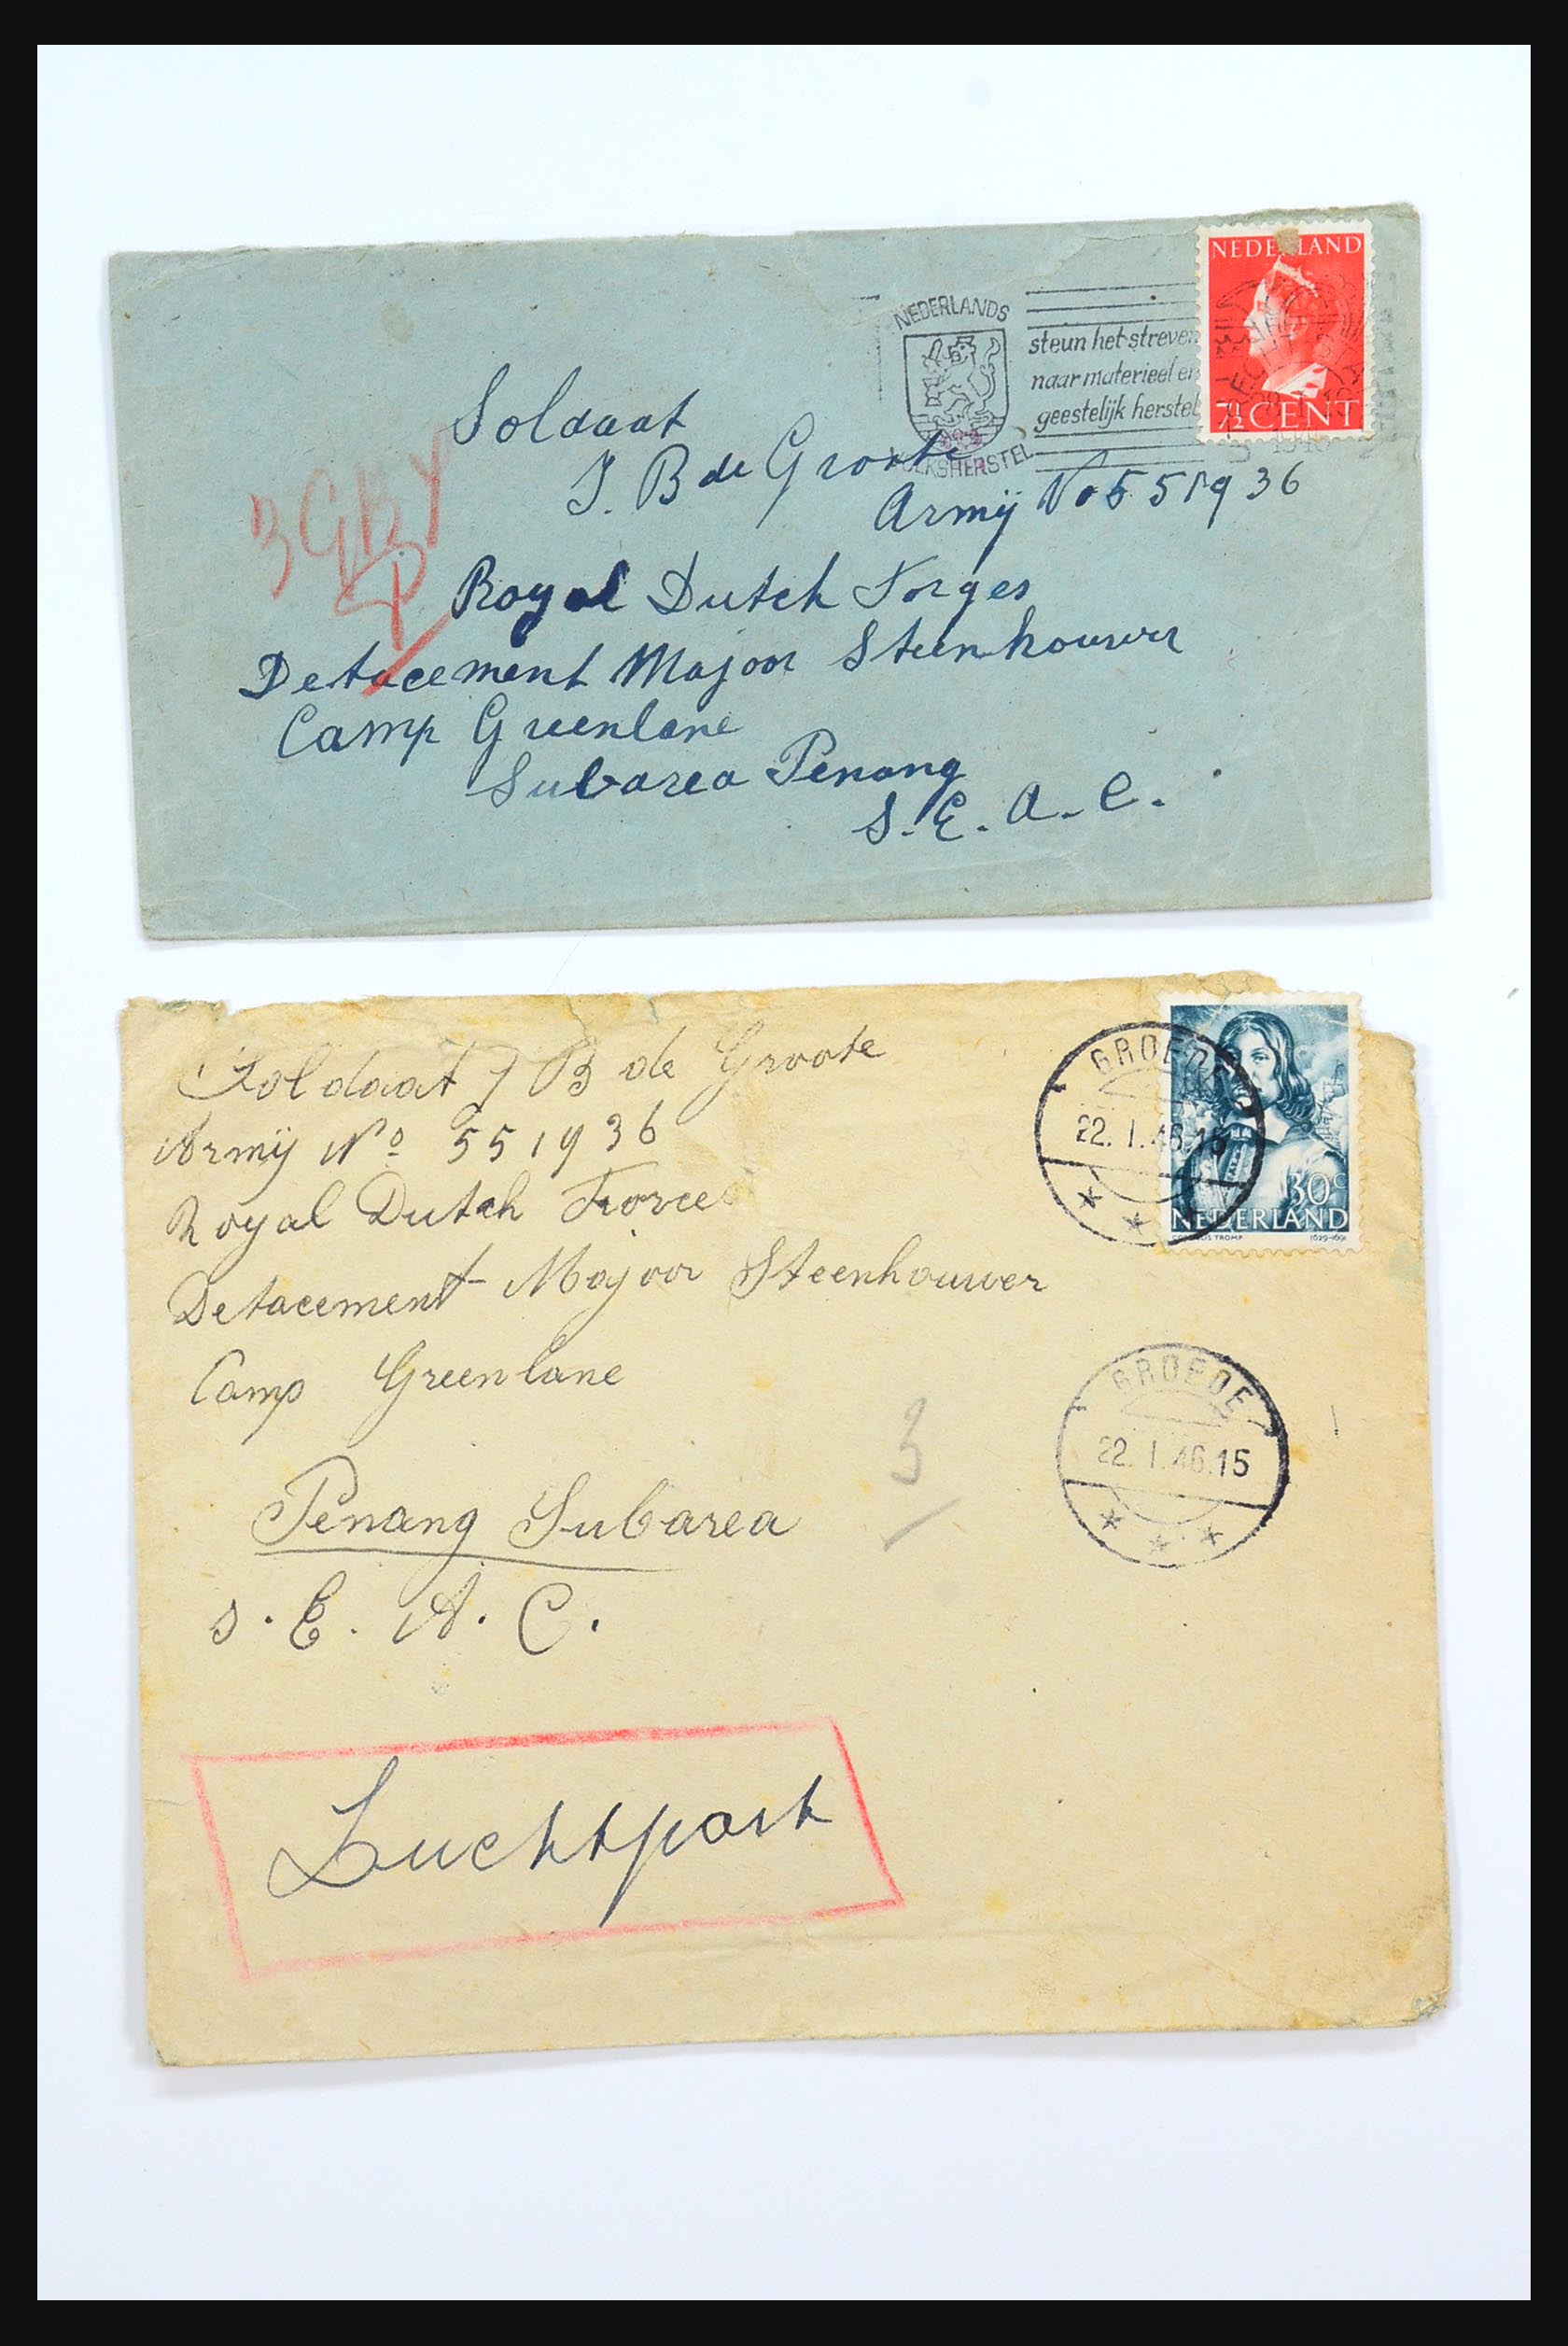 NEDERLAND
7½ CENT
NEDERLANDS
VOLKSHERSTEL
steun het streven
naar materieel en
geestelijk herstel
1946
Soldaat
J. B de Groote
Armij No 551936
3 GBY
Royal Dutch Forges
Detacement Majoor Steenhouwer
Camp Greenlane
Subarea Penang
S. E. A. C.
Soldaat J B de Groote
Armij No 551936
Royal Dutch Forces
Detacement Majoor Steenhouwer
Camp Greenlane
Penang Subarea
S. E. A. C.
3
Luchtpost
GROEDE
22. 1.46.15
30c
NEDERLAND
CORNELIS TROMP 1629-1691
GROEDE
22. 1.46.15